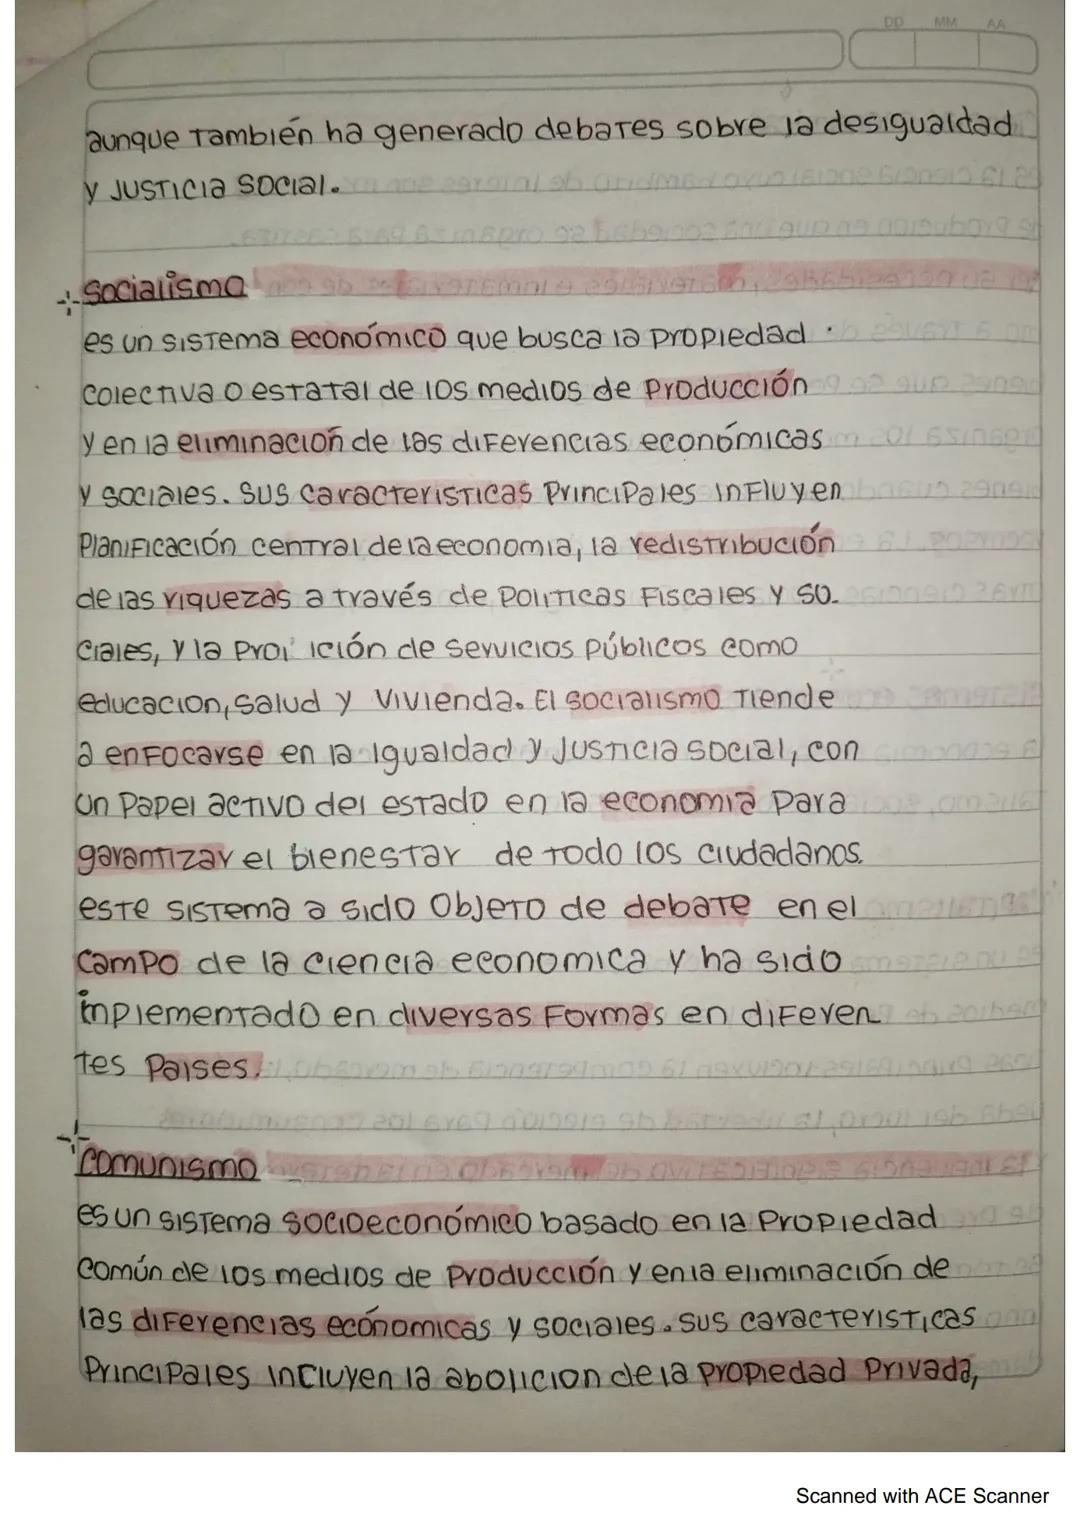 DD MM AA
aunque también ha generado debates sobre la desigualdad
y justicia social.
Socialismo
es un sistema económico que busca la propiedad
colectiva o estatal de los medios de producción
y en la eliminación de las diferencias económicas
y sociales. sus caracteristicas principales influyen
Planificación central de la economia, la redistribución
de las riquezas a través de politicas fiscales y so-
ciales, y la ición de servicios públicos como
educacion, salud y vivienda. El socialismo tiende
a enfocarse en la igualdad y justicia social, con
un papel activo del estado en la economia para
garantizar el bienestar de todo los ciudadanos.
este sistema a sido objeto de debate en el
campo de la ciencia economica y ha sido
inplementado en diversas formas en diferen
tes paises.
Comunismo
es un sistema socioeconómico basado en la propiedad
común de los medios de producción y en la eliminación de
las diferencias ecónomicas y sociales. sus caracteristicas
principales incluyen la abolicion de la propiedad privada,
Scanned with ACE Scanner